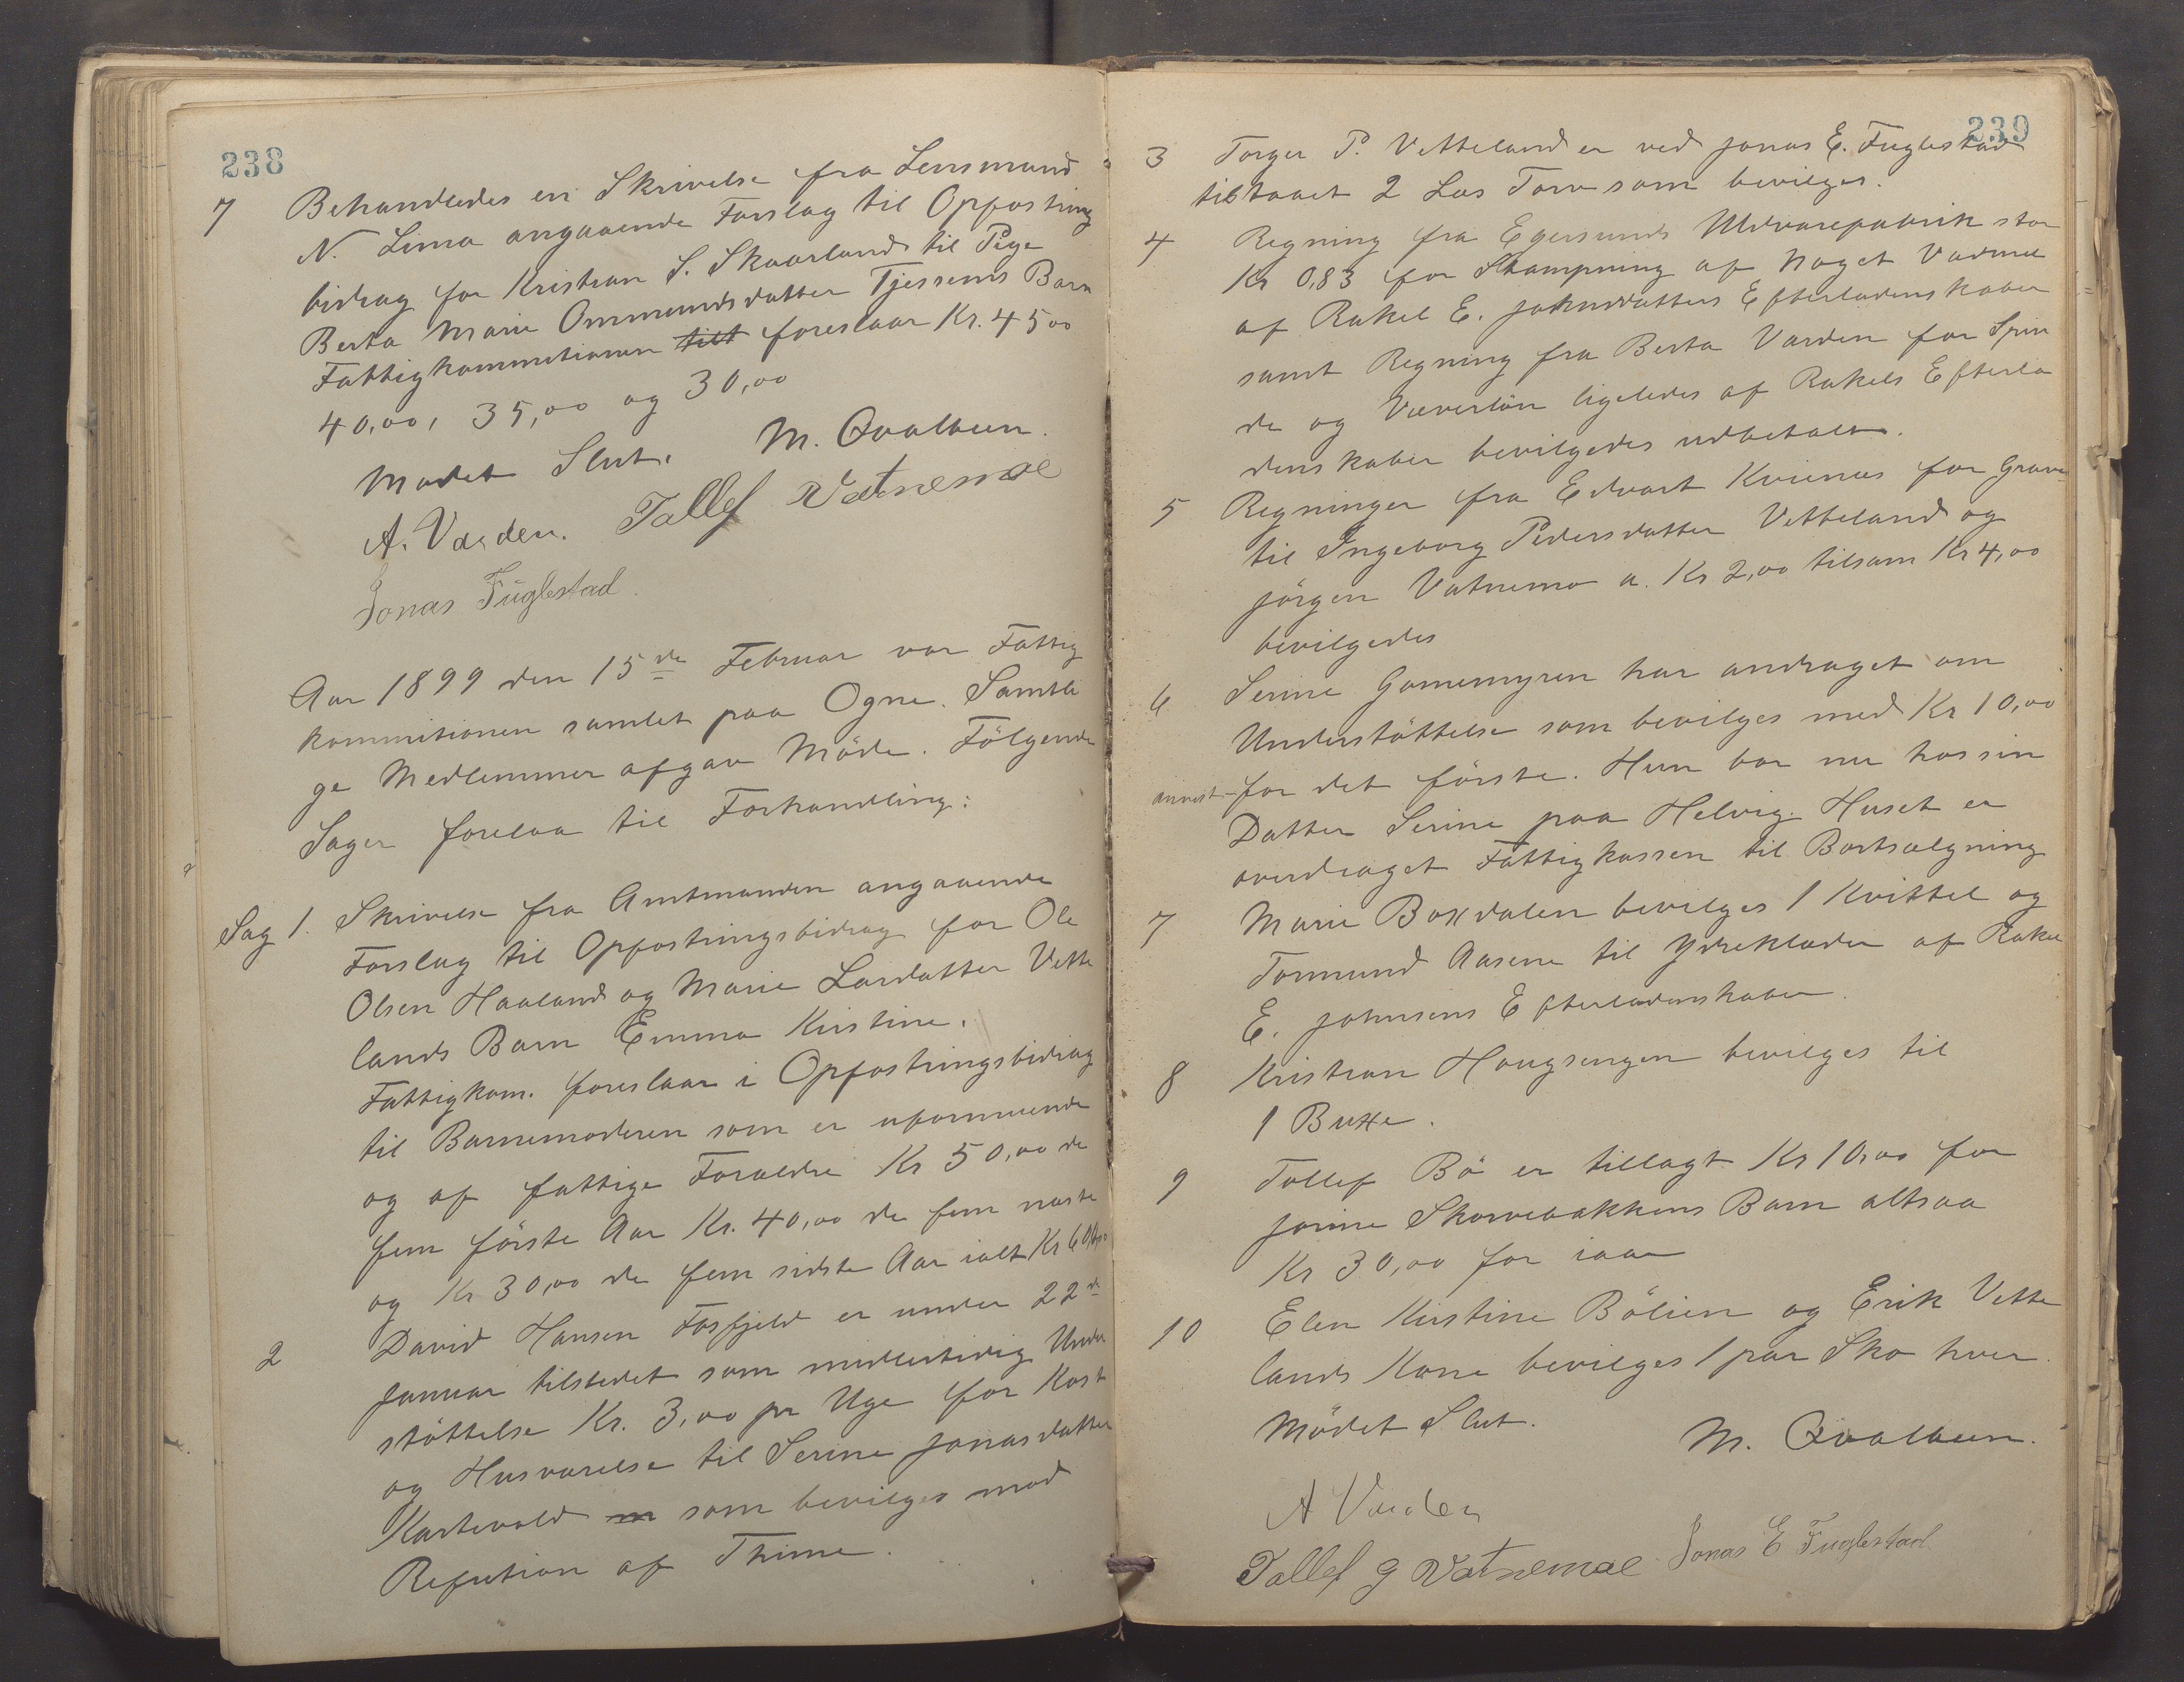 238
7 Behandledes en Skrivelse fra Lensmand
N. Lima angaaende Forslag til Opfostrings
bidrag for Kristian S. Skaarland til Pige
Berta Marie Ommundsdatter Tjessems Barn
Fattigkommitionen tilt foreslaar Kr. 45 00
40,00, 35,00 og 30,00
Mødet Slut. M. Qvalbein.
A. Varden. Tallef Vatnemoe
Jonas Fuglestad.
Aar 1899 den 15de Februar var Fattig
kommitionen samlet paa Ogne. Samtli
ge Medlemmer afgav Möde. Fölgende
Sager forelaa til Forhandling:
Sag 1. Skrivelse fra Amtmanden angaaende
Forslag til Opfostringsbidrag for Ole
Olsen Haaland og Marie Larsdatter Vette
lands Barn Emma Kirstine.
Fattigkom. foreslaar i Opfostringsbidrag
til Barnemoderen som er uformuende
og af fattige Foraldre Kr 50,00 de
fem förste Aar Kr. 40,00 de fem næste
og Kr 30,00 de fem sidste Aar ialt Kr 600,00
2 David Hansen Fosfjeld er under 22de
Januar tilstedet som midlertidig Under
støttelse Kr. 3,00 pr Uge for Kost
og Husvarelse til Serine Jonasdatter
Kartevold m som bevilges mod
Refution af Thime.
239
3 Torger P. Vetteland er ved Jonas E. Fuglestad
tilstaaet 2 Læs Torv som bevilges.
4 Regning fra Egersunds Uldvarefabrik stor
Kr 0,83 for Stampning af noget Vadmel
af Rakel E. Johnsdatters Efterladenskaber
samt Regning fra Berta Varden for Spin
de og Væverlön ligeledes af Rakels Efterla
denskaber bevilgedes udbetalt.
5 Regninger fra Edvart Kvienæs for Grave
til Ingeborg Pedersdatter Vetteland og
Jörgen Vatnemo a. Kr 2,00 tilsam Kr 4,00
bevilgedes
6 Serine Gomemyren har andraget om
Understöttelse som bevilges med Kr 10,00
anvist - for det förste. Hun bor nu hos sin
Datter Serine paa Helvig. Huset er
overdraget Fattigkassen til Bortsælgning
7 Marie Boxdalen bevilges 1 Kvittel og
Tormund Aasene til Ydreklæder af Rakel
E. Johnsens Efterladenskaber.
8 Kristian Haugsengen bevilges til
1 Buxe.
9 Tollef Bö er tillagt Kr 10,00 for
Jorine Skorvebakkens Barn altsaa
Kr 30,00 for iaar
10 Elen Kirstine Bölien og Erik Vette
lands Kone bevilges 1 par Sko hver.
Mödet Slut. M. Qvalbein.
A Varden
Tallef G Vatnemoe Jonas E Fuglestad